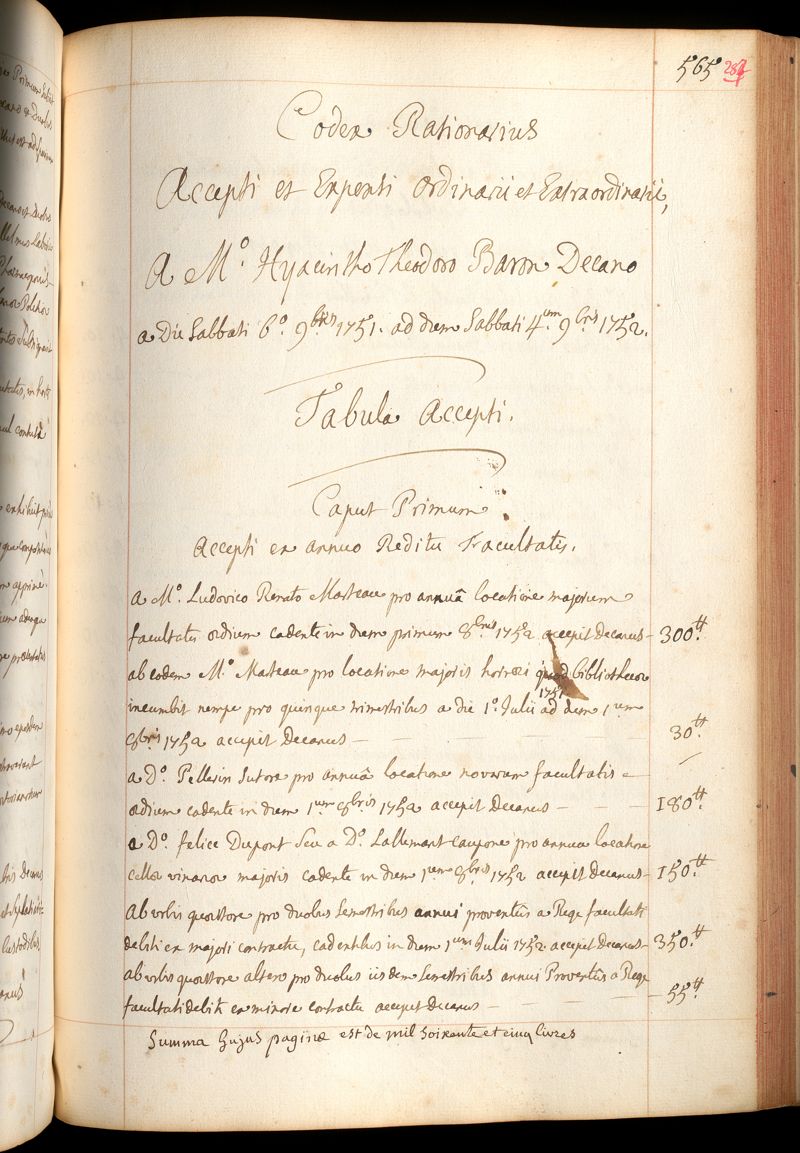 565 284
Codex Rationarius
Accepti et Expensi Ordinarii et Extraordinarii,
A M.o Hyacintho Theodoro Baron Decano
a Die Sabbati 6.o 9bris 1751. ad diem Sabbati 4.um 9bris 1752.
Tabula Accepti.
Caput Primum
Accepti ex annuo Reditu Facultatis.
a M.o Ludovico Renato Marteau pro annuâ locatione majorum
facultatis aedium cadente in diem primum 8bris 1752 accepit decanus - 300.tt
ab eodem M.o Mateau pro locatione majoris horraei quod bibliothecae
incumbit nempe pro quinque trimestribus a die 1.o Julii 1751 ad diem 1.um
8bris 1752 accepit Decanus - 30.tt
a D.o Pellerin Sutore pro annuâ locatione novarum facultatis
aedium cadente in diem 1.um 8bris 1752 accepit Decanus - 180.tt
a D.o felice Dupont seu a D.o Lallemant Caupone pro annua locatione
cellae vinariae majoris cadente in diem 1.um 8bris 1752 accepit Decanus - 150.tt
Ab urbis quaestore pro duobus semestribus annui proventûs a Rege facultati
debiti ex majori contractu, cadentibus in diem 1.um Julii 1752 accepit Decanus - 350.tt
ab urbis quaestore altero pro duobus iisdem semestribus annui Proventûs a Rege
facultati debiti ex minore contractu accepit decanus - 55.tt
Summa hujus paginae est de mil soixante et cinq livres